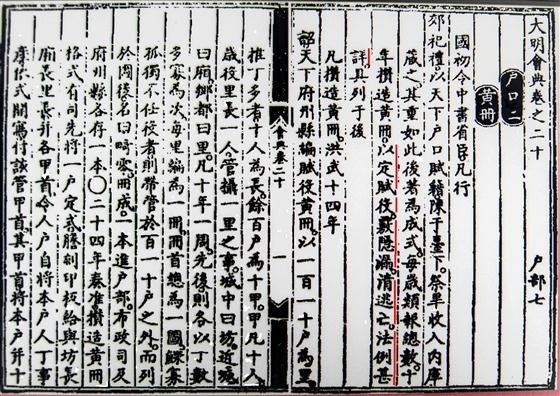 大明會典卷之二十
戶部七
戶口二
黃冊
國初令中書省臣凡行
郊祀禮以天下戶口賦籍陳于臺下祭畢收入內庫
藏之其重如此後著為成式每歲類報總數十
年攢造黃冊以定賦役覈隱漏清逃亡法例甚
詳具列于後
凡攢造黃冊洪武十四年
詔天下府州縣編賦役黃冊以一百一十戶為里
會典卷二十
一
推丁多者十人為長餘百戶為十甲甲凡十人
歲役里長一人管攝一里之事城中曰坊近城
曰廂鄉都曰里凡十年一周先後則各以丁數
多寡為次每里編為一冊冊首總為一圖鰥寡
孤獨不任役者則帶管於百一十戶之外而列
於圖後名曰畸零冊成一本進戶部布政司及
府州縣各存一本〇二十四年奏准攢造黃冊
格式有司先將一戶定式謄刻印板給與坊長
廂長里長并各甲首令人戶自將本戶人丁事
產依式開寫付該管甲首其甲首將本戶并十